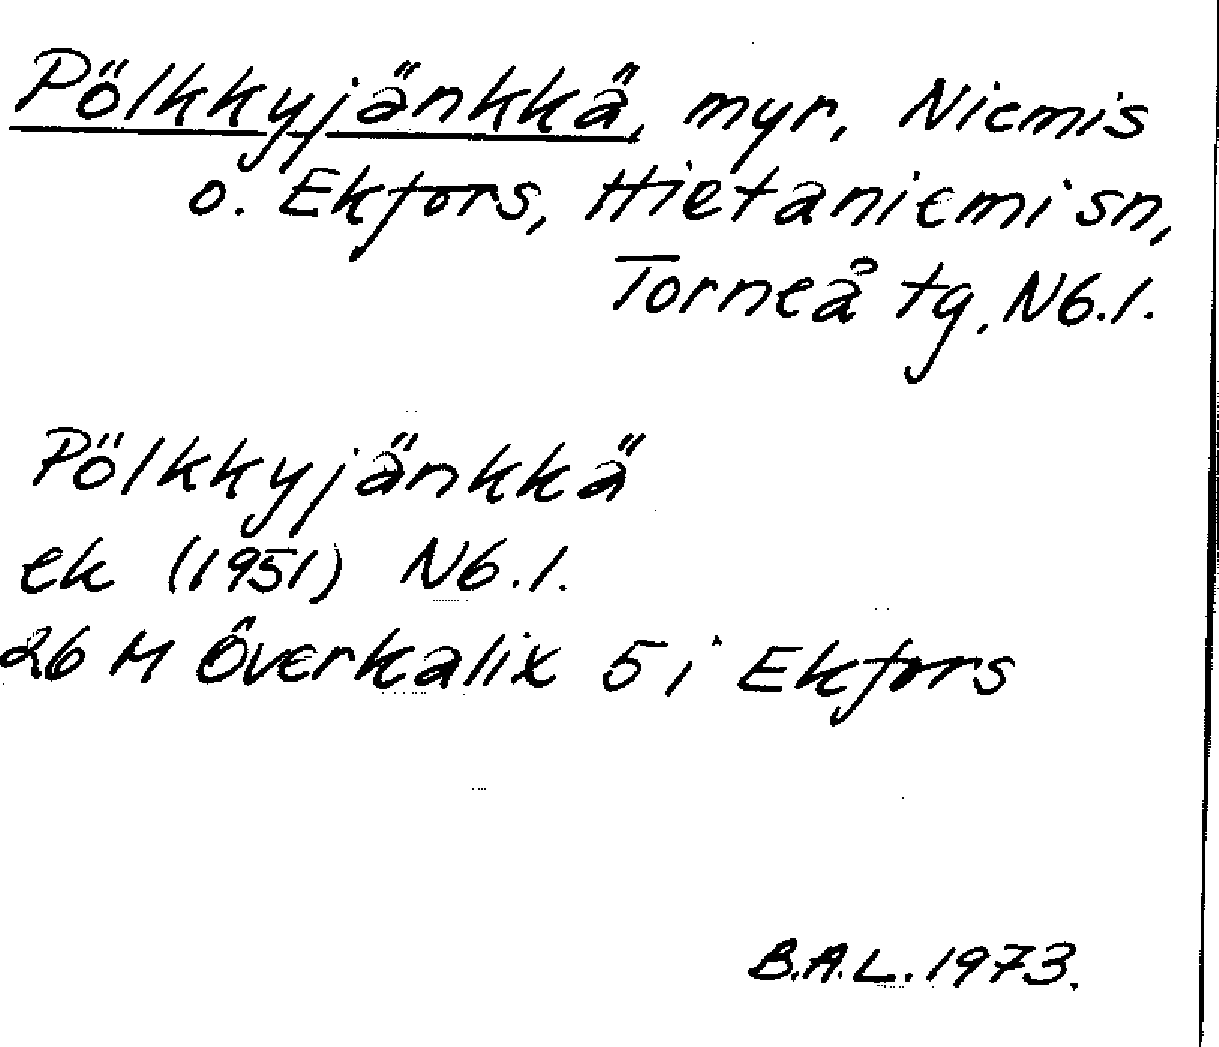 Pölkkyjänkkä, myr, Niemis
o. Ekfors, Hietaniemi sn,
Torneå tg, Nb.l.
Pölkkyjänkkä
ek (1951) Nb.l.
26 M Överkalix 5 i Ekfors
B.A.L. 1973.